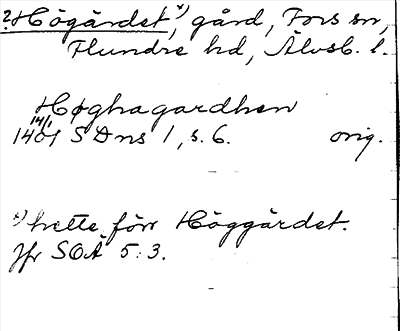 ?Högärdet, x) gård, Fors sn,
Flundre hd, Älvsb. l.
Høghagardhen
14/1
1401 SDns 1, s. 6. orig.
x) hette förr Höggärdet.
Jfr SOÄ 5:3.